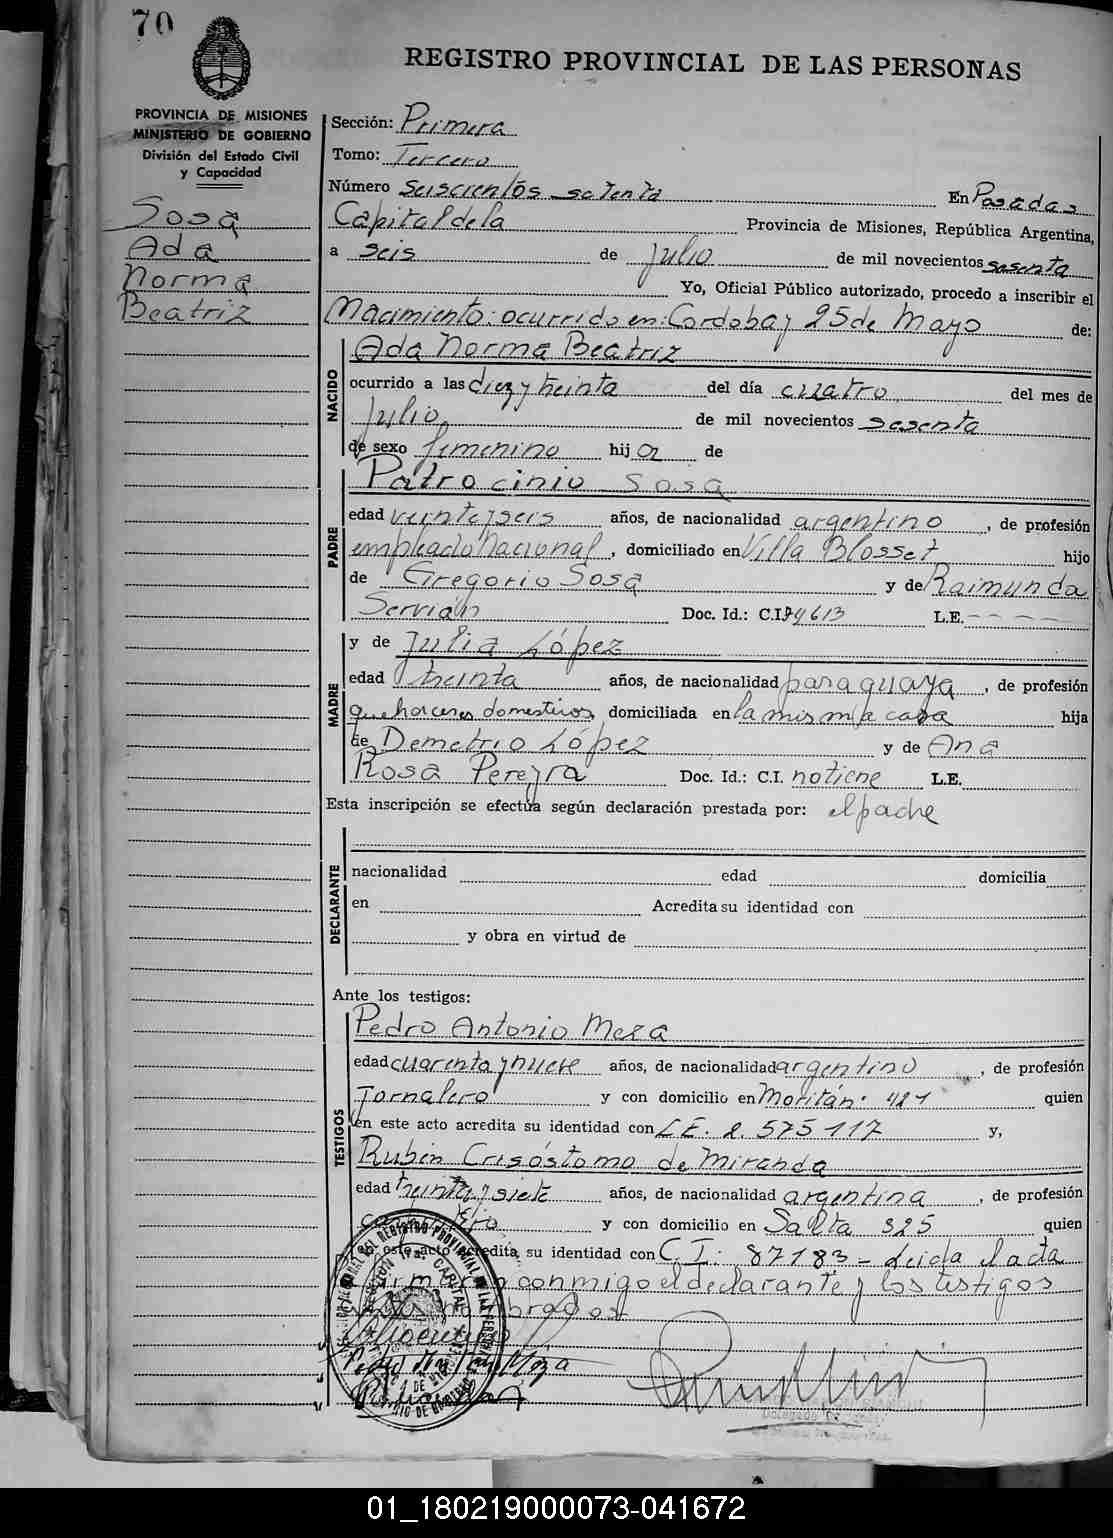 70
REGISTRO PROVINCIAL DE LAS PERSONAS
PROVINCIA DE MISIONES
MINISTERIO DE GOBIERNO
División del Estado Civil
y Capacidad
Sosa
Ada
Norma
Beatriz
Sección: Primera
Tomo: Tercero
Número seiscientos setenta En Posadas
Capital de la Provincia de Misiones, República Argentina,
a seis de Julio de mil novecientos sesenta
Yo, Oficial Público autorizado, procedo a inscribir el
Nacimiento: ocurrido en: Cordoba y 25 de Mayo de:
NACIDO
Ada Norma Beatriz
ocurrido a las diez y treinta del día cuatro del mes de
Julio de mil novecientos sesenta
de sexo femenino hija de
PADRE
Patrocinio Sosa
edad veinte y seis años, de nacionalidad argentino, de profesión
empleado Nacional, domiciliado en Villa Blosset hijo
de Gregorio Sosa y de Raimunda
Servián Doc. Id.: C.I. 94613 L.E. - - - -
MADRE
y de Julia López
edad treinta años, de nacionalidad paraguaya, de profesión
quehaceres domesticos, domiciliada en la misma casa hija
de Demetrio López y de Ana
Rosa Pereyra Doc. Id.: C.I. no tiene L.E.
Esta inscripción se efectúa según declaración prestada por: el padre
DECLARANTE
nacionalidad edad domicilia
en Acredita su identidad con
y obra en virtud de
Ante los testigos:
TESTIGOS
Pedro Antonio Meza
edad cuarenta y nueve años, de nacionalidad argentino, de profesión
Jornalero y con domicilio en Moritán 421 quien
en este acto acredita su identidad con L.E. 2.575117 y,
Rubén Crisóstomo de Miranda
edad treinta y siete años, de nacionalidad argentina, de profesión
y con domicilio en Salta 325 quien
en este acto acredita su identidad con C.I: 87183 - Leida el acta
conmigo el declarante y los testigos
01_180219000073-041672